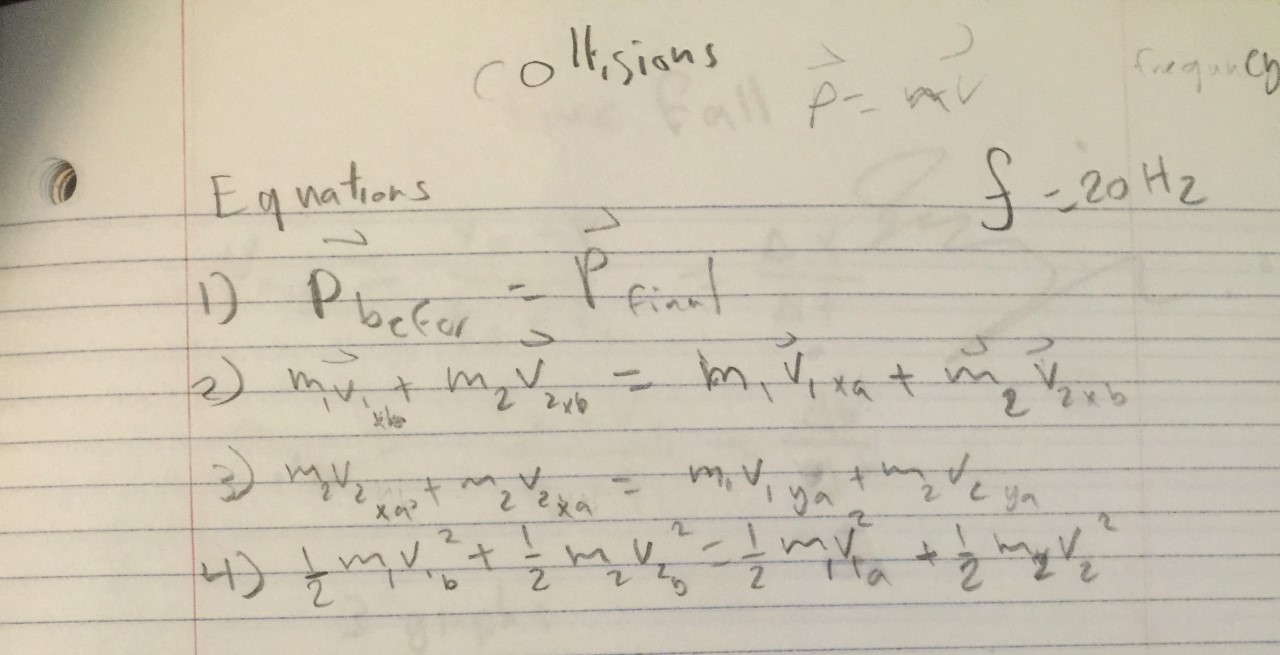 Collisions
p⃗ = mv⃗
frequency
Equations
f = 20 Hz
1) P⃗ befor = P⃗ final
2) m₁v⃗₁xb + m₂v⃗₂xb = m₁v⃗₁xa + m⃗₂v⃗₂xb
3) m₂v₂xa + m₂v₂xa = m₁v₁ya + m₂v₂ya
4) ½ m₁v₁b² + ½ m₂v₂b² = ½ m₁v₁a² + ½ m₂v₂²